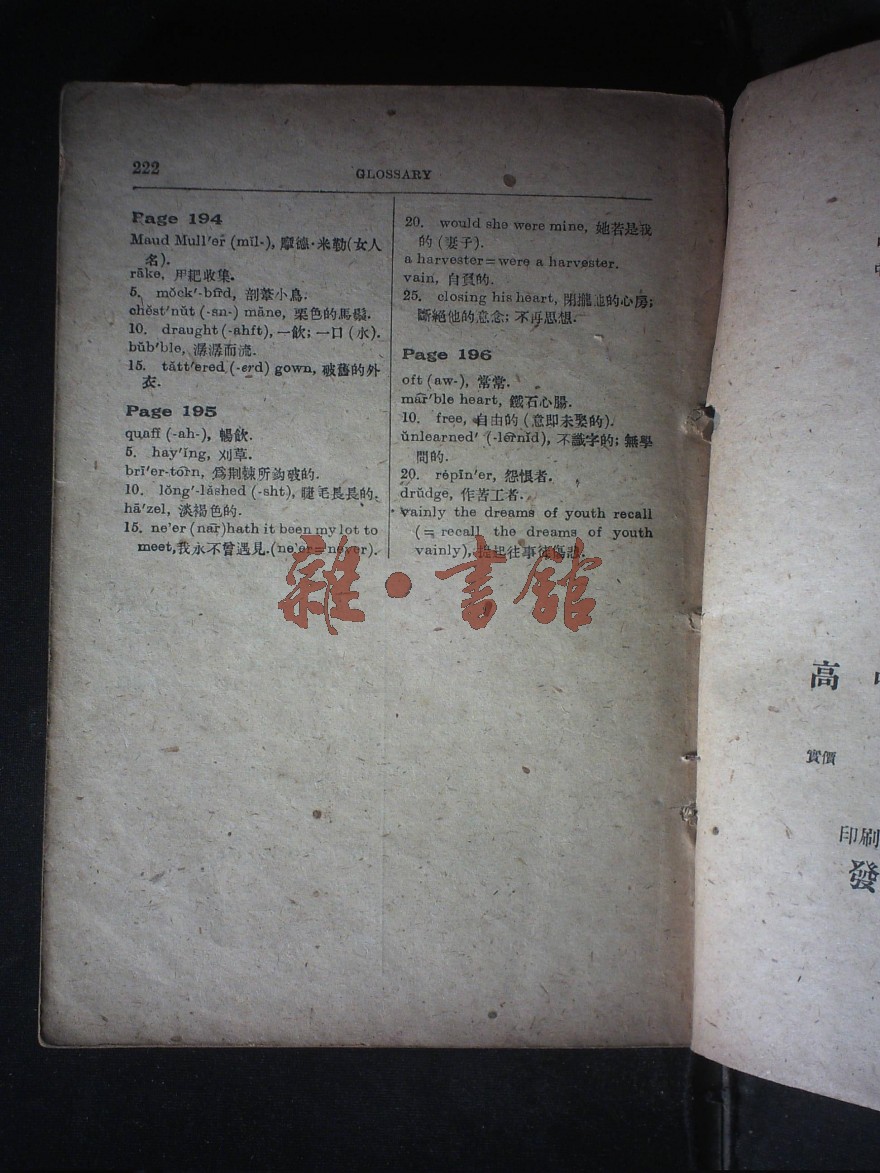 222
GLOSSARY
Page 194
Maud Mull'er (mĭl-), 摩德·米勒(女人
名).
rāke, 用耙收集.
5. mŏck'-bĭrd, 剖葦小鳥.
chĕst'nŭt (-sn-) māne, 栗色的馬鬃.
10. draught (-ahft), 一飲; 一口 (水).
bŭb'ble, 潺潺而流.
15. tătt'ered (-erd) gown, 破舊的外
衣.
Page 195
quaff (-ah-), 暢飲.
5. hay'ĭng, 刈草.
brī'er-tôrn, 爲荆棘所鈎破的.
10. lŏng'-lăshed (-sht), 睫毛長長的.
hā'zel, 淡褐色的.
15. ne'er (nār) hath it been my lot to
meet, 我永不曾遇見. (ne'er=never).
20. would she were mine, 她若是我
的 (妻子).
a harvester=were a harvester.
vain, 自負的.
25. closing his heart, 閉攏他的心房;
斷絕他的意念; 不再思想.
Page 196
oft (aw-), 常常.
mär'ble heart, 鐵石心腸.
10. free, 自由的 (意即未娶的).
ŭnlearned' (-lērnĭd), 不識字的; 無學
問的.
20. rēpīn'er, 怨恨者.
drŭdge, 作苦工者.
vainly the dreams of youth recall
(= recall the dreams of youth
vainly), 提起往事徒傷悲.
雜·書館
高
實價
印刷
發